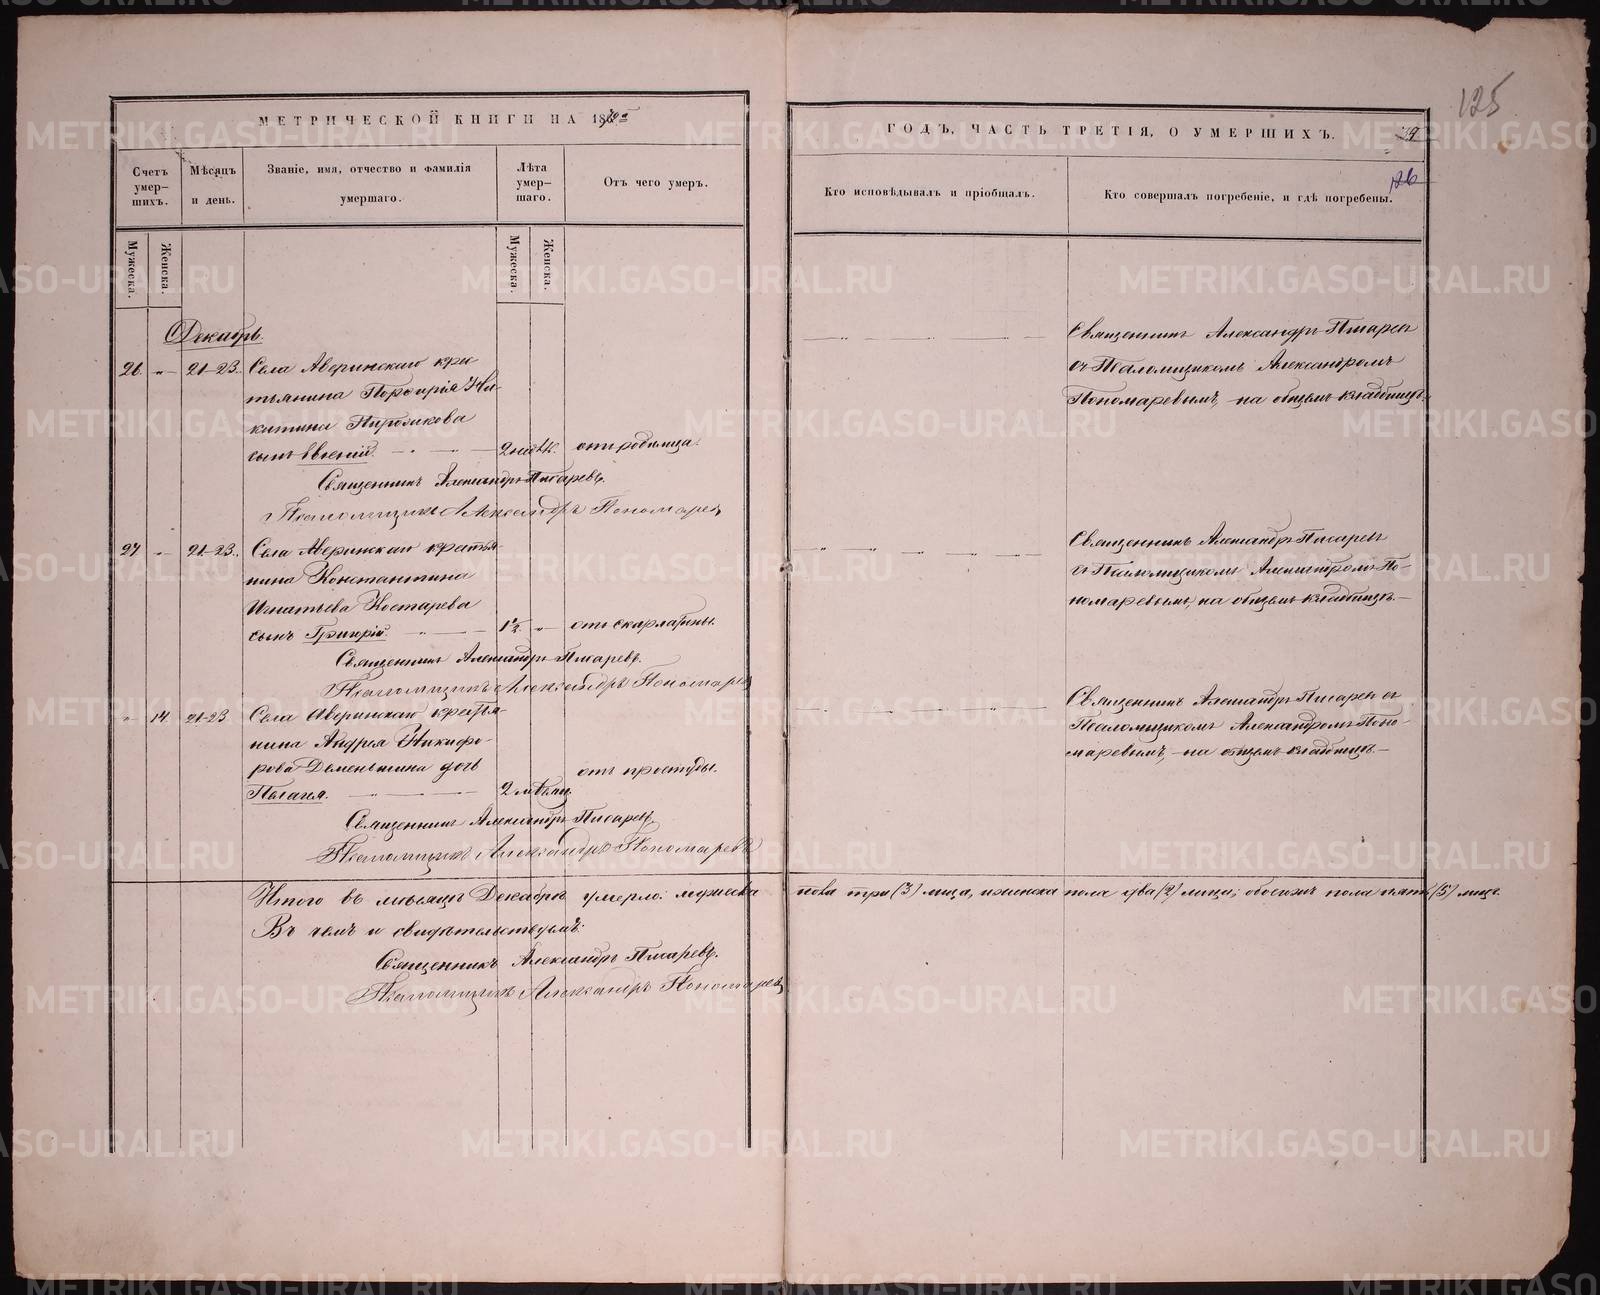 125
МЕТРИЧЕСКОЙ КНИГИ НА 1870й
ГОДЪ, ЧАСТЬ ТРЕТІЯ, О УМЕРШИХЪ.
126
Счетъ умер-шихъ.
Мѣсяцъ и день.
Званіе, имя, отчество и фамилія умершаго.
Лѣта умер-шаго.
Отъ чего умеръ.
Кто исповѣдывалъ и пріобщалъ.
Кто совершалъ погребеніе, и гдѣ погребены.
Мужеска.
Женска.
Мужеска.
Женска.
Декабрь.
26 „ 21-23. Села Аверинскаго крес
тьянина Порфирія Ни-
китина
сынъ Евгеній. 2 недѣл. отъ родимца.
Священникъ Александръ Писаревъ.
Псаломщикъ Александръ Пономаревъ
Священникъ Александръ Писаревъ
съ Псаломщикомъ Александромъ
Пономаревымъ, на общемъ кладбищѣ.
27 „ 21-23. Села Аверинскаго крестья
нина Константина
Игнатьева Костарева
сынъ Григорій. 1½ „ отъ скарлатины.
Священникъ Александръ Писаревъ.
Псаломщикъ Александръ Пономаревъ
Священникъ Александръ Писаревъ
съ Псаломщикомъ Александромъ По-
номаревымъ, на общемъ кладбищѣ.
„ 14. 21-23 Села Аверинскаго крестья-
нина Андрея Никифо-
рова Деменьшина дочь
Пелагея. 2 мѣсяц. отъ простуды.
Священникъ Александръ Писаревъ
Псаломщикъ Александръ Пономаревъ
Священникъ Александръ Писаревъ съ
Псаломщикомъ Александромъ Поно-
маревымъ, на общемъ кладбищѣ.
Итого въ мѣсяцѣ Декабрѣ умерло: мужеска пола три (3) лица, женска пола два (2) лица; обоего пола пять (5) лицъ.
Въ чемъ и свидѣтельствуемъ:
Священникъ Александръ Писаревъ.
Псаломщикъ Александръ Пономаревъ
METRIKI.GASO-URAL.RU